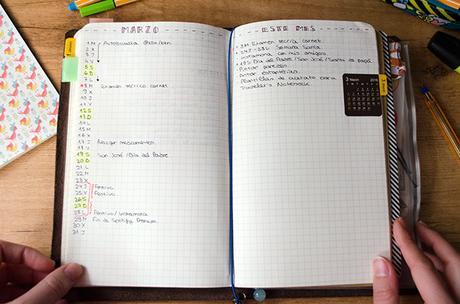 MARZO
1 M Autoescuela
2 X
3 J
4 V
5 S
6 D
7 L
8 M Examen teórico carnet
9 X
10 J
11 V
12 S
13 D
14 L
15 M
16 X
17 J Recoger medicamentos
18 V
19 S San José/Día del Padre
20 D
21 L
22 M
23 X
24 J Festivo
25 V Festivo
26 S
27 D
28 L Festivo/
29 M Fin de Spotify Premium
30 X
31 J
ESTE MES
8M Examen teórico carnet.
24J-28L Semana Santa
con mis amigos.
19S Día del Padre/San José/Santo de papá.
Pintar
Pintar estanterías.
Plantillas de para
Traveler's Notebook.
3 March 2016